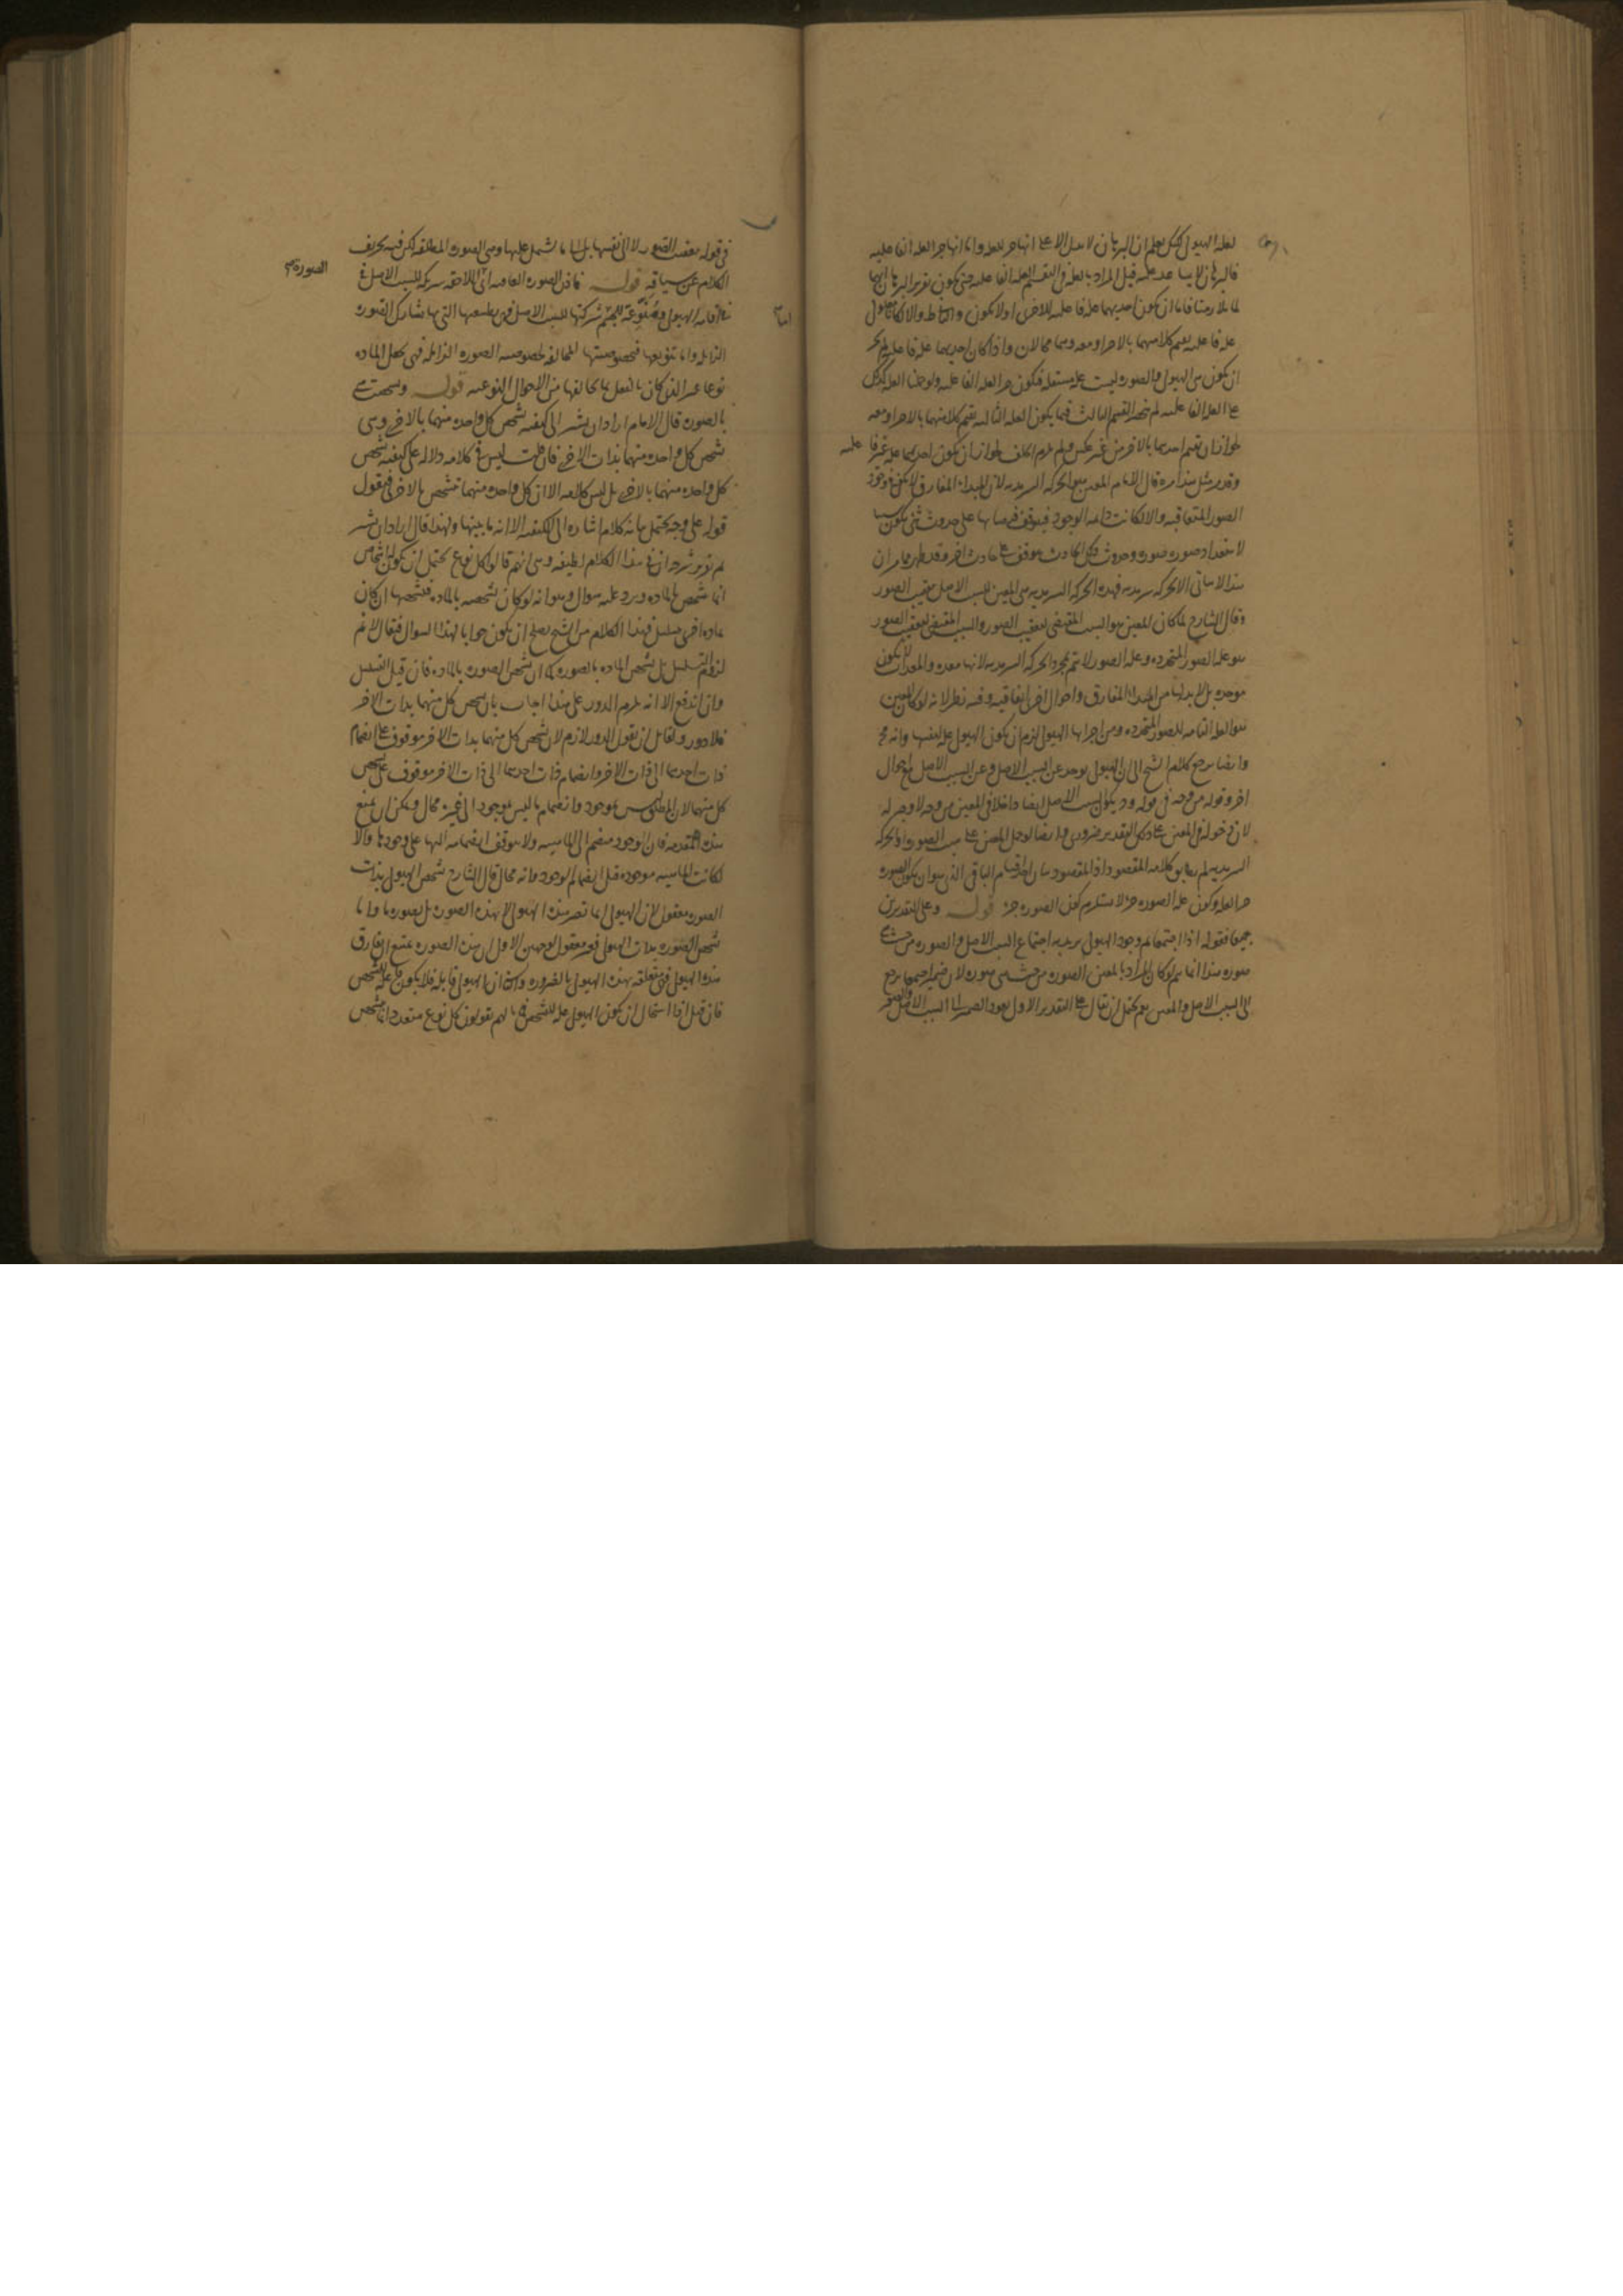 لعله الهيولى لكن يعلم ان البرهان لا يدل الا على انها جزء للعله واما انها جزء العله الفاعليه
فالبرهان لا يساعد عليه قيل المراد بالعله في التقسيم العله الفاعليه حتى يكون تقرير البرهان انهما
لما تلازمتا فاما ان يكون احديهما عله فاعليه للاخرى او لا يكون
عله فاعليه يقيم كلا منهما بالاخر او معه وهما محالان واذا كان احديهما عله فاعليه لم يجز
ان يكون هي الهيولى والصوره ليست عله مستقله فيكون جزء العله الفاعليه ولو حملنا العله
على العله الفاعليه لم ينحصر القسم الثالث فيما يكون العله الثالثه تقيم كلا منهما بالاخر او معه
لجواز ان تقيم احديهما بالاخر من غير عكس ولم يلزم الخلف لجواز ان يكون احديهما عله غير فا عليه
وقد مر مثل هذا مره قال الامام المعين هو الحركه السرمديه لان المبدا المفارق لا يكفي في وجود
الصور المتعاقبه والا لكانت دائمه الوجود فيتوقف فيضانها على حدوث شئ يكون سببا
لاستعداد صوره صوره وحدوث ذلك الحادث موقوف على حادث اخر وقد مر ان
هذا لا يتاتى الا بحركه سرمديه فهذه الحركه السرمديه هي المعين للسبب الاصل معقب الصور
وقال الشارح لما كان المعين هو السبب المقتضى لتعقيب الصور والسبب المقتضى لتعقيب الصور
هو عله الصور المتجدده وعله الصور لا تتم بمجرد الحركه السرمديه لانها معده والمعد لا يكون
موجده بل لابد لها من المبدا المفارق واحوال اخرى اتفاقيه وفيه نظر لانه لو كان المعين
هو العله التامه للصور المتجدده ومن اجزائها الهيولى لزم ان يكون الهيولى عله لنفسها وانه مح
وايضا يرجع كلام الشيخ الى ان الهيولى توجد عن السبب الاصل وعن السبب الاصل مع احوال
اخر وقوله من وجه في قوله وقد يكون السبب الاصل ايضا داخلا في المعين من وجه لا وجه له
لان دخوله في المعين على ذلك التقدير ضروري وايضا لو حمل المعين على سبب الصوره او الحركه
السرمديه لم يطابق كلامه المقصود اذ المقصود بيان احد اقسام الباقي الذي هو ان يكون الصوره
جزء العله وكون عله الصوره جزءا لا يستلزم كون الصوره جزء قوله وعلى التقديرين
جميعا فقوله اذا اجتمعا تم وجود الهيولى يريد به اجتماع السبب الاصل والصوره من حيث هي
صوره هذا انما يتم لو كان المراد بالمعين الصوره من حيث هي صوره لان ضمير اجتمعا يرجع
الى السبب الاصل والمعين نعم يحتمل ان يقال على التقدير الاول يعود الضمير الى السبب الاصل والصور
في قوله بتعقيب الصور لا الى نفسها بل الى ما تشتمل عليها وهي الصوره المطلقه لكن فيه تحريف
الكلام عن سياقه قوله فاذن الصوره العاميه اى اللاحقه شريكه للسبب الاصل في
الصوره
اقامه الهيولى ومنوعه للجسم شركتها للسبب الاصل فمن طبيعتها التي بها تشارك الصوره
الزايله واما تنويعها فبخصوصيتها المخالفه لخصوصيه الصوره الزايله فهى تجعل الماده
نوعا غير الذي كان بالفعل بما يخالفها من الاحوال النوعيه قوله وتشخصت هي
بالصوره قال الامام اراد ان يشير الى كيفيه تشخص كل واحده منهما بالاخرى وهي
تشخص كل واحده منهما بذات الاخرى فان قلت ليس في كلامه دلاله على كيفيه تشخص
كل واحده منهما بالاخرى بل ليس كلامه الا ان كل واحده منهما تتشخص بالاخرى فيقول
قوله على وجه يحتمل بيانه كلام اشاره الى الكيفيه الا انه ما بينها ولهذا قال اراد ان يشير
لم نورد شرحا في هذا الكلام لطيفه وهي انهم قالوا كل نوع يحتمل ان يكون له اشخاص
انما تشخص بالماده ويرد عليه سوال وهو انه لو كان تشخصه بالماده فتشخصها ان كان
بماده اخرى تسلسل فهذا الكلام من الشيخ يصلح ان يكون جوابا لهذا السوال فيقال لا نم
لزوم التسلسل بل تشخص الماده بالصوره كما ان تشخص الصوره بالماده فان قيل التسلسل
وان اندفع الا انه يلزم الدور على هذا اجاب بان تشخص كل منهما بذات الاخر
فلا دور ولقائل ان يقول الدور لازم لان تشخص كل منهما بذات الاخر موقوف على انضمام
ذات احدهما الى ذات الاخر وانضمام ذات احدهما الى ذات الاخر موقوف على تشخص
كل منهما لان المطلق ليس بموجود وانضمام ما ليس بموجود الى غيره محال ويمكن ان يمنع
هذه المقدمه فان الوجود منضم الى الماهيه ولا يتوقف انضمامه اليها على وجودها والا
لكانت الماهيه موجوده قبل انضمام الوجود وانه محال قال الشارح تشخص الهيولى بذات
الصوره معقول لان الهيولى انما تصير هذه الهيولى لا بهذه الصوره بل بصوره ما واما
تشخص الصوره بذات الهيولى فغير معقول لوجهين الاول ان هذه الصوره يمتنع ان تفارق
هذه الهيولى فهي متعلقه بهذه الهيولى بالضروره والثاني ان الهيولى قابله فلا يكون فاعله للتشخص
فان قيل اذا استحال ان يكون الهيولى عله للتشخص فما بالهم يقولون كل نوع متعدد الاشخاص